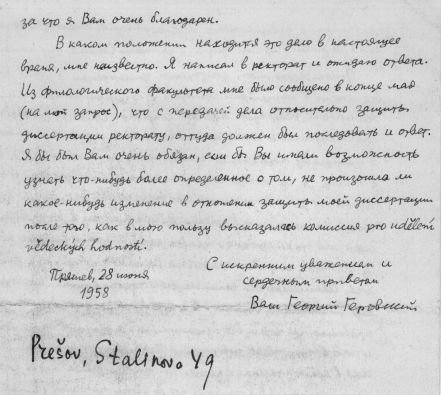 за что я Вам очень благодарен.
В каком положении находится это дело в настоящее
время, мне неизвестно. Я написал в ректорат и ожидаю ответа.
Из филологического факультета мне было сообщено в конце мая
(на мой запрос), что с передачей дела относительно защиты
диссертации ректорату, оттуда должен был последовать и ответ.
Я бы был Вам очень обязан, если бы Вы имели возможность
узнать что-нибудь более определенное о том, не произошла ли
какое-нибудь изменение в отношении защиты моей диссертации
после того, как в мою пользу высказалась комиссия pro udělení
vědeckých hodností.
С искренним уважением и
сердечным приветом
Ваш Георгий Геровский
Пряшев, 28 июня
1958
Prešov, Stalinova 49